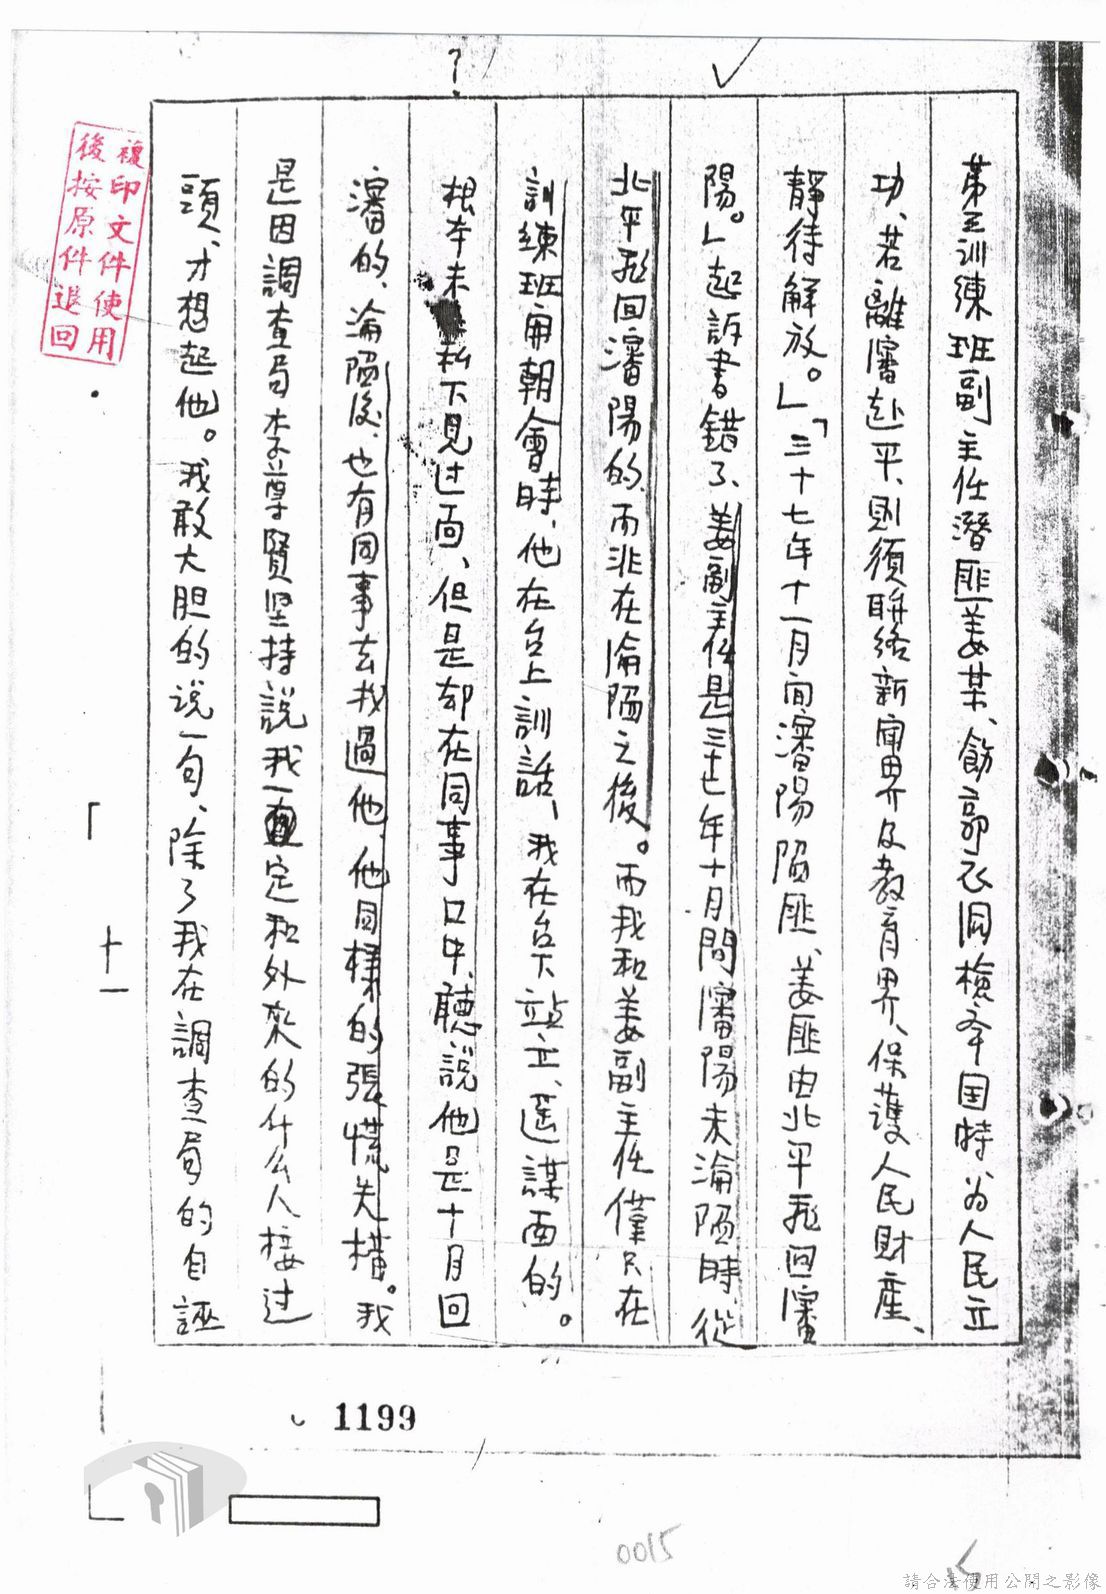 第三訓練班副主任潛匪姜某、飭郭衣洞檢举国特、为人民立
功、若離瀋赴平、則須聯絡新闻界及教育界、保護人民財產、
靜待解放。」「三十七年十一月间瀋陽陷匪、姜匪由北平飛回瀋
陽。」起訴書錯了、姜副主任是三十七年十月間瀋陽未淪陷時、從
北平飛回瀋陽的、而非在淪陷之後。而我和姜副主任僅只在
訓練班開朝會時、他在台上訓話、我在台下站立、遥謀面的。
根本未私下見过面、但是却在同事口中、聽說他是十月回
瀋的、淪陷後、也有同事去找過他、他同樣的張慌失措。我
是因調查局李尊賢坚持說我一定和外來的什么人接过
頭、才想起他。我敢大胆的说一句、除了我在調查局的自誣
十一
複印文件使用
後按原件退回
1199
0015
15
請合法使用公開之影像